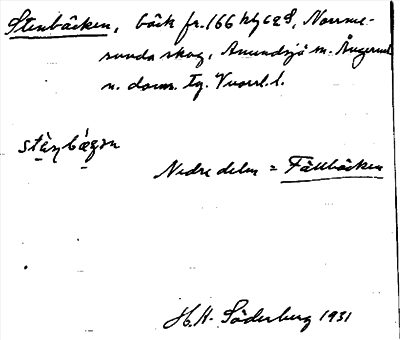 Stenbäcken, bäck fr. 166 hly 628, Norrme-
sunda skog, Anundsjö sn. Ångerml
n. doms. Tg.
stènbä́gən
Nedre delen = Fällbäcken
H.H. Söderberg 1931